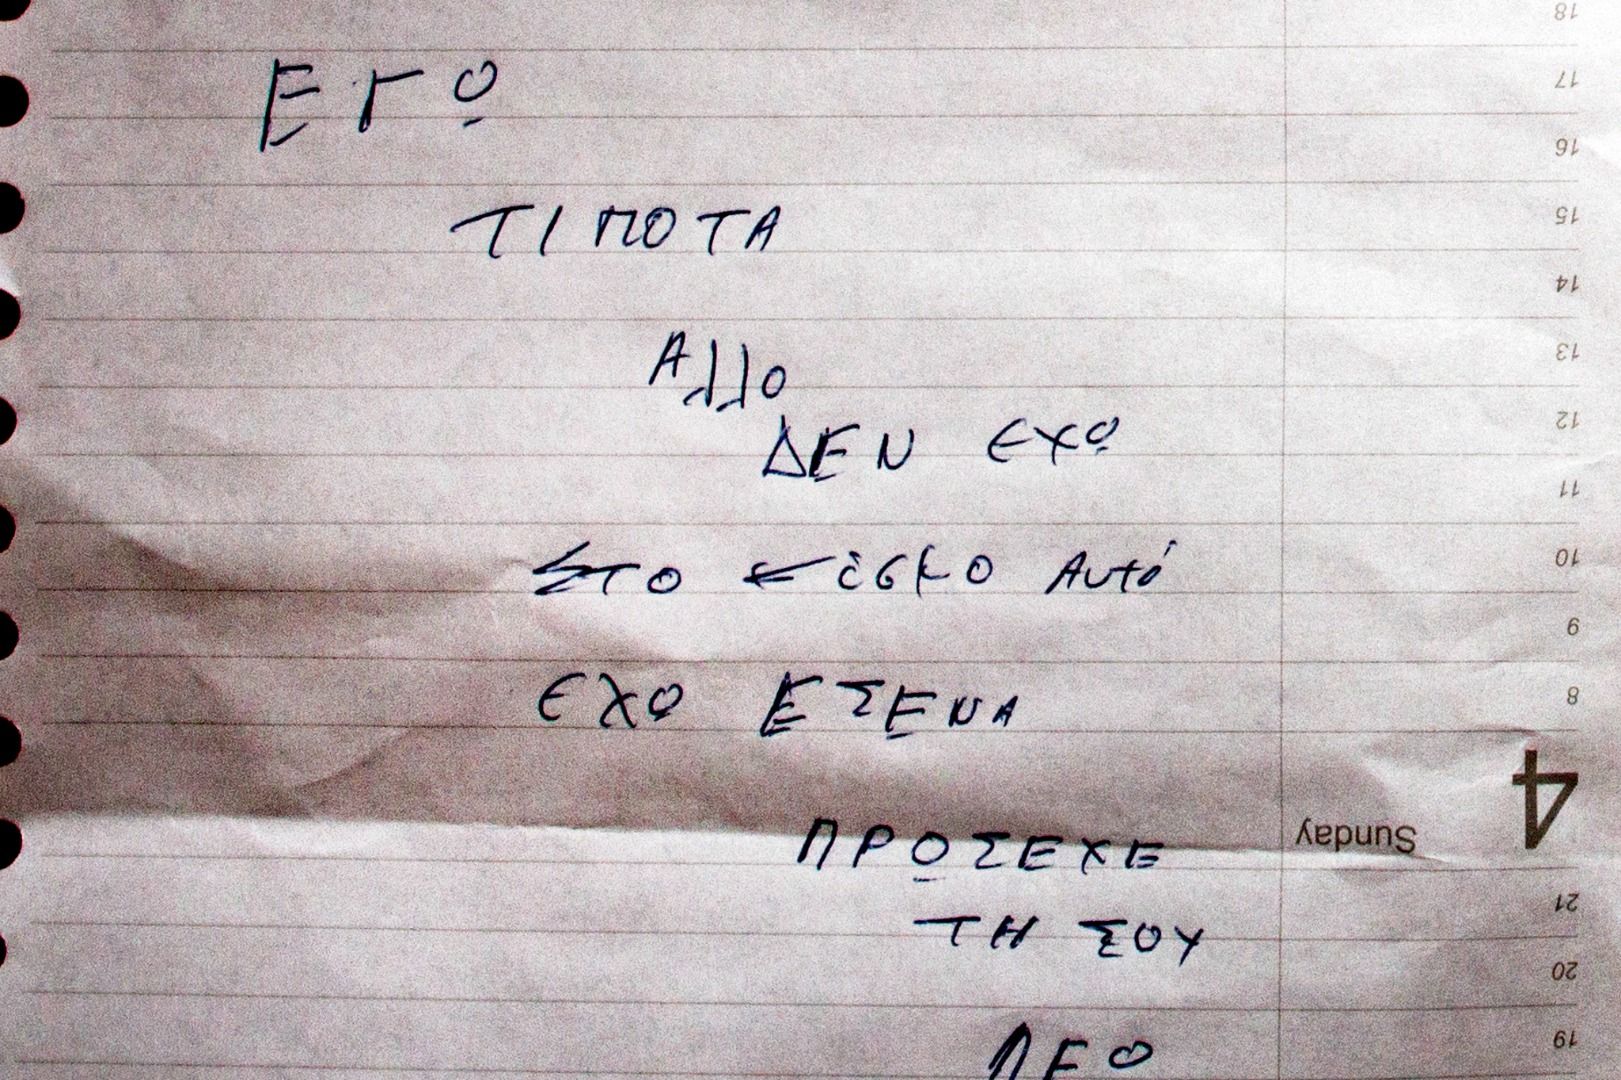 18
17
ΕΓΩ
16
15
ΤΙΠΟΤΑ
14
13
Αλλο
12
ΔΕΝ ΕΧΩ
11
10
ΣΤΟ Αυτό
9
ΕΧΩ ΕΣΕΝΑ
8
4
Sunday
ΠΡΟΣΕΧΕ
21
ΤΗ ΣΟΥ
20
19
ΛΕΟ